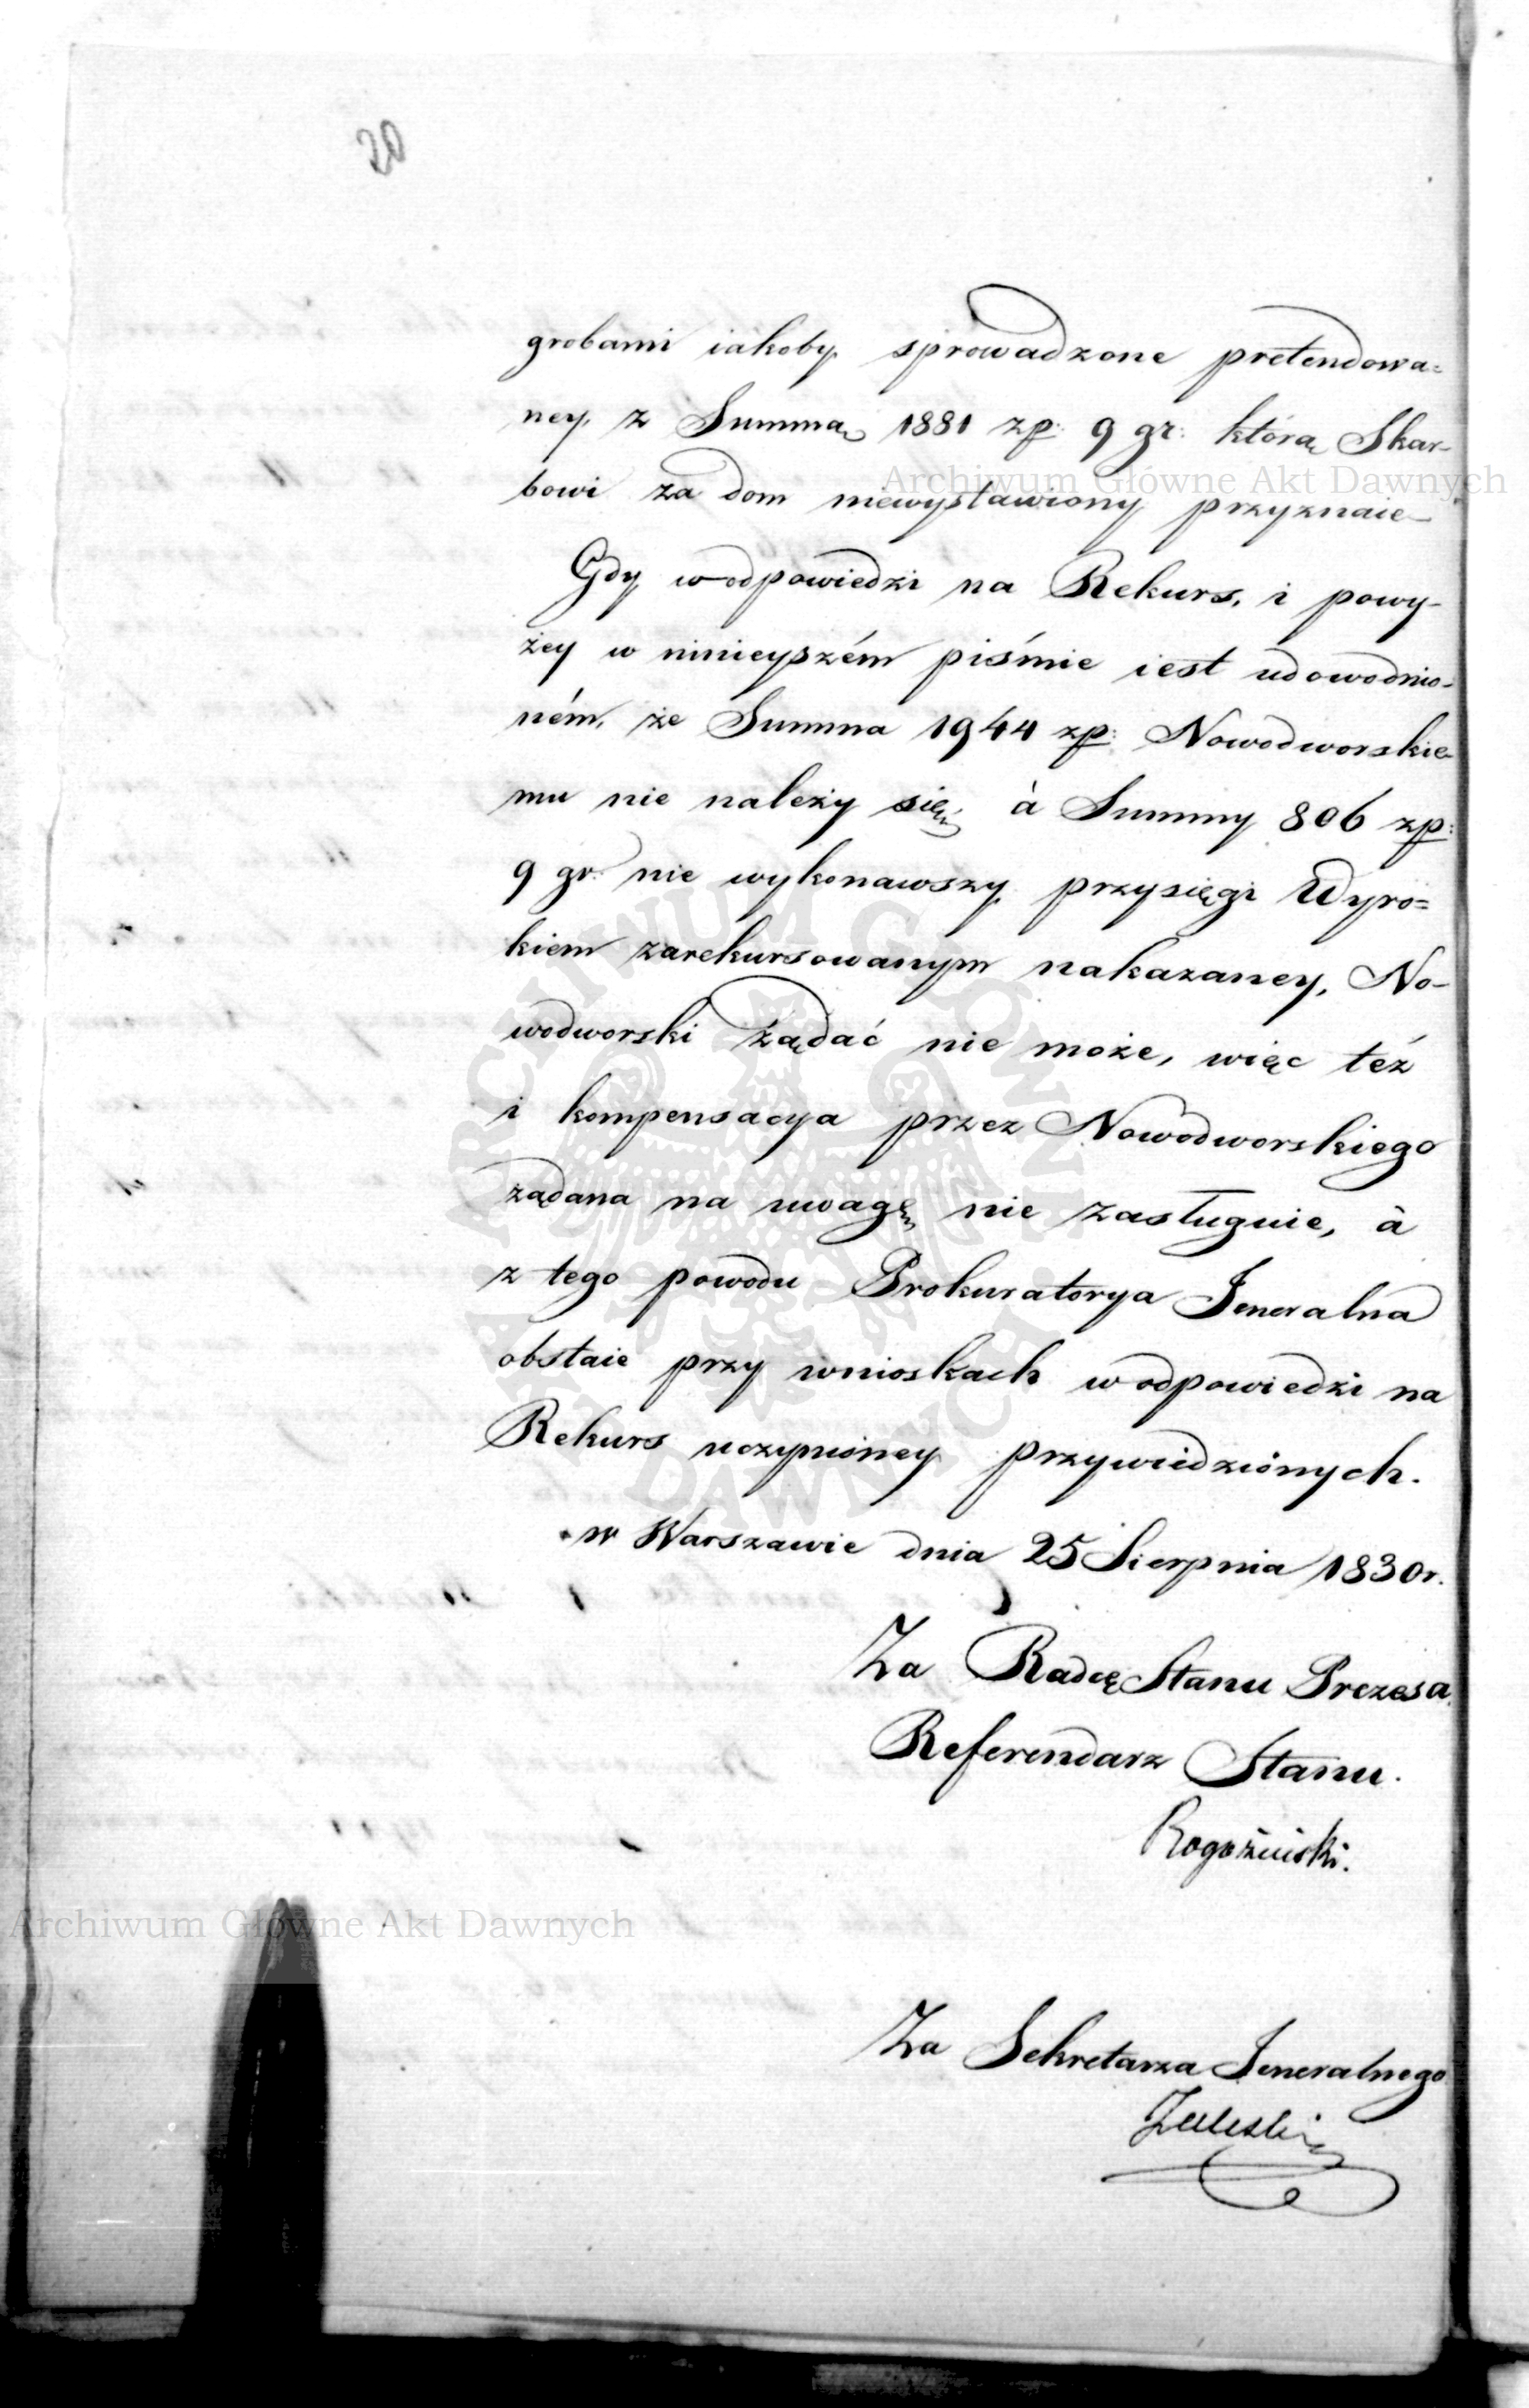 20
grobami iakoby sprowadzone pretendowa=
ney, z Summą 1881 zp: 9 gr: którą Skar-
bowi za dom niewystawiony przyznaie
Gdy w odpowiedzi na Rekurs, i powy-
żey w ninieyszém piśmie iest udowodnio-
ném, że Summa 1944 zp: Nowodworskie-
mu nie należy się, à Summy 806 zp:
9 gr: nie wykonawszy przysięgi Wyro=
kiem zarekursowanym nakazaney, No-
wodworski żądać nie może, więc téż
i kompensacya przez Nowodworskiego
żądana na uwagę nie zasługuie, à
z tego powodu Prokuratorya Jeneralna
obstaie przy wnioskach w odpowiedzi na
Rekurs uczynioney przywiedzionych.
w Warszawie dnia 25 Sierpnia 1830 r.
Za Radcę Stanu Prezesa
Referendarz Stanu.
Rogoziński.
Za Sekretarza Jeneralnego
Zaleski
Archiwum Główne Akt Dawnych
Archiwum Główne Akt Dawnych
ARCHIWUM GŁÓWNE AKT DAWNYCH